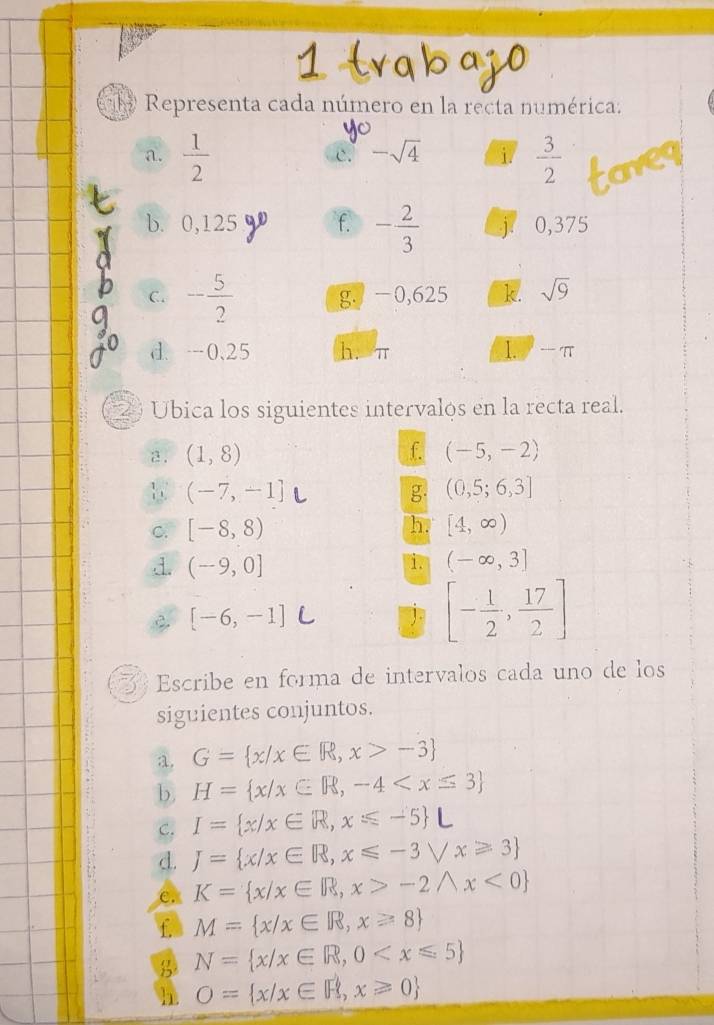 1 trabajo
1 Representa cada número en la recta numérica.
yo
a. 1/2 e. -√4 i. 3/2 tarea
b. 0,125 yo f. -2/3 j. 0,375
trabajo
c. -5/2 g. -0,625 k. √9
d. -0,25 h. π l. -π
2 Ubica los siguientes intervalos en la recta real.
a. (1, 8) f. (-5, -2)
b. (-7, -1] L g. (0,5; 6,3]
c. [-8, 8) h. [4, ∞)
d. (-9, 0] i. (-∞, 3]
e. [-6, -1] L j. [-1/2, 17/2]
3 Escribe en forma de intervalos cada uno de los
siguientes conjuntos.
a. G = {x/x ∈ ℝ, x > -3}
b. H = {x/x ∈ ℝ, -4 < x ≤ 3}
c. I = {x/x ∈ ℝ, x ⩽ -5} L
d. J = {x/x ∈ ℝ, x ⩽ -3 ∨ x ⩾ 3}
e. K = {x/x ∈ ℝ, x > -2 ∧ x < 0}
f. M = {x/x ∈ ℝ, x ⩾ 8}
g. N = {x/x ∈ ℝ, 0 < x ⩽ 5}
h. O = {x/x ∈ ℝ, x ⩾ 0}